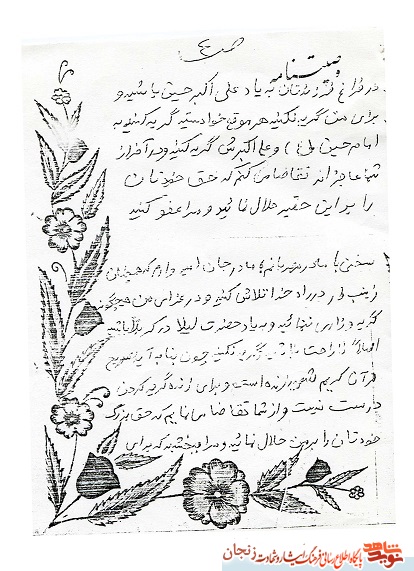 ص ٤
وصیتنامه
در فراغ فرزندتان به یاد علی اکبر حسین باشید و
برای من گریه نکنید هر موقع خواستید گریه کنید به
امام حسین (ع) و علی اکبرش گریه کنید و در آخر از
شما عاجزانه تقاضا می کنم که حق خودتان
را بر این حقیر حلال نمائید و مرا عفو کنید
سخنی با مادر مهربانم، مادر جان امیدوارم که همچنان
زینب وار در راه خدا تلاش کنید و در عزای من هیچگونه
گریه و زاری ننمائید و به یاد حضرت لیلا در کربلا باشید
اصلاً ناراحت نباشید گریه نکنید چون بنا به آیه صریح
قرآن کریم شهید زنده است و برای زنده گریه کردن
درست نیست و از شما تقاضا می نمایم که حق بزرگ
خودتان را بر من حلال نمائید و مرا ببخشید که برای
نوید شاهد
پایگاه اطلاع رسانی فرهنگ ایثار و شهادت زنجان